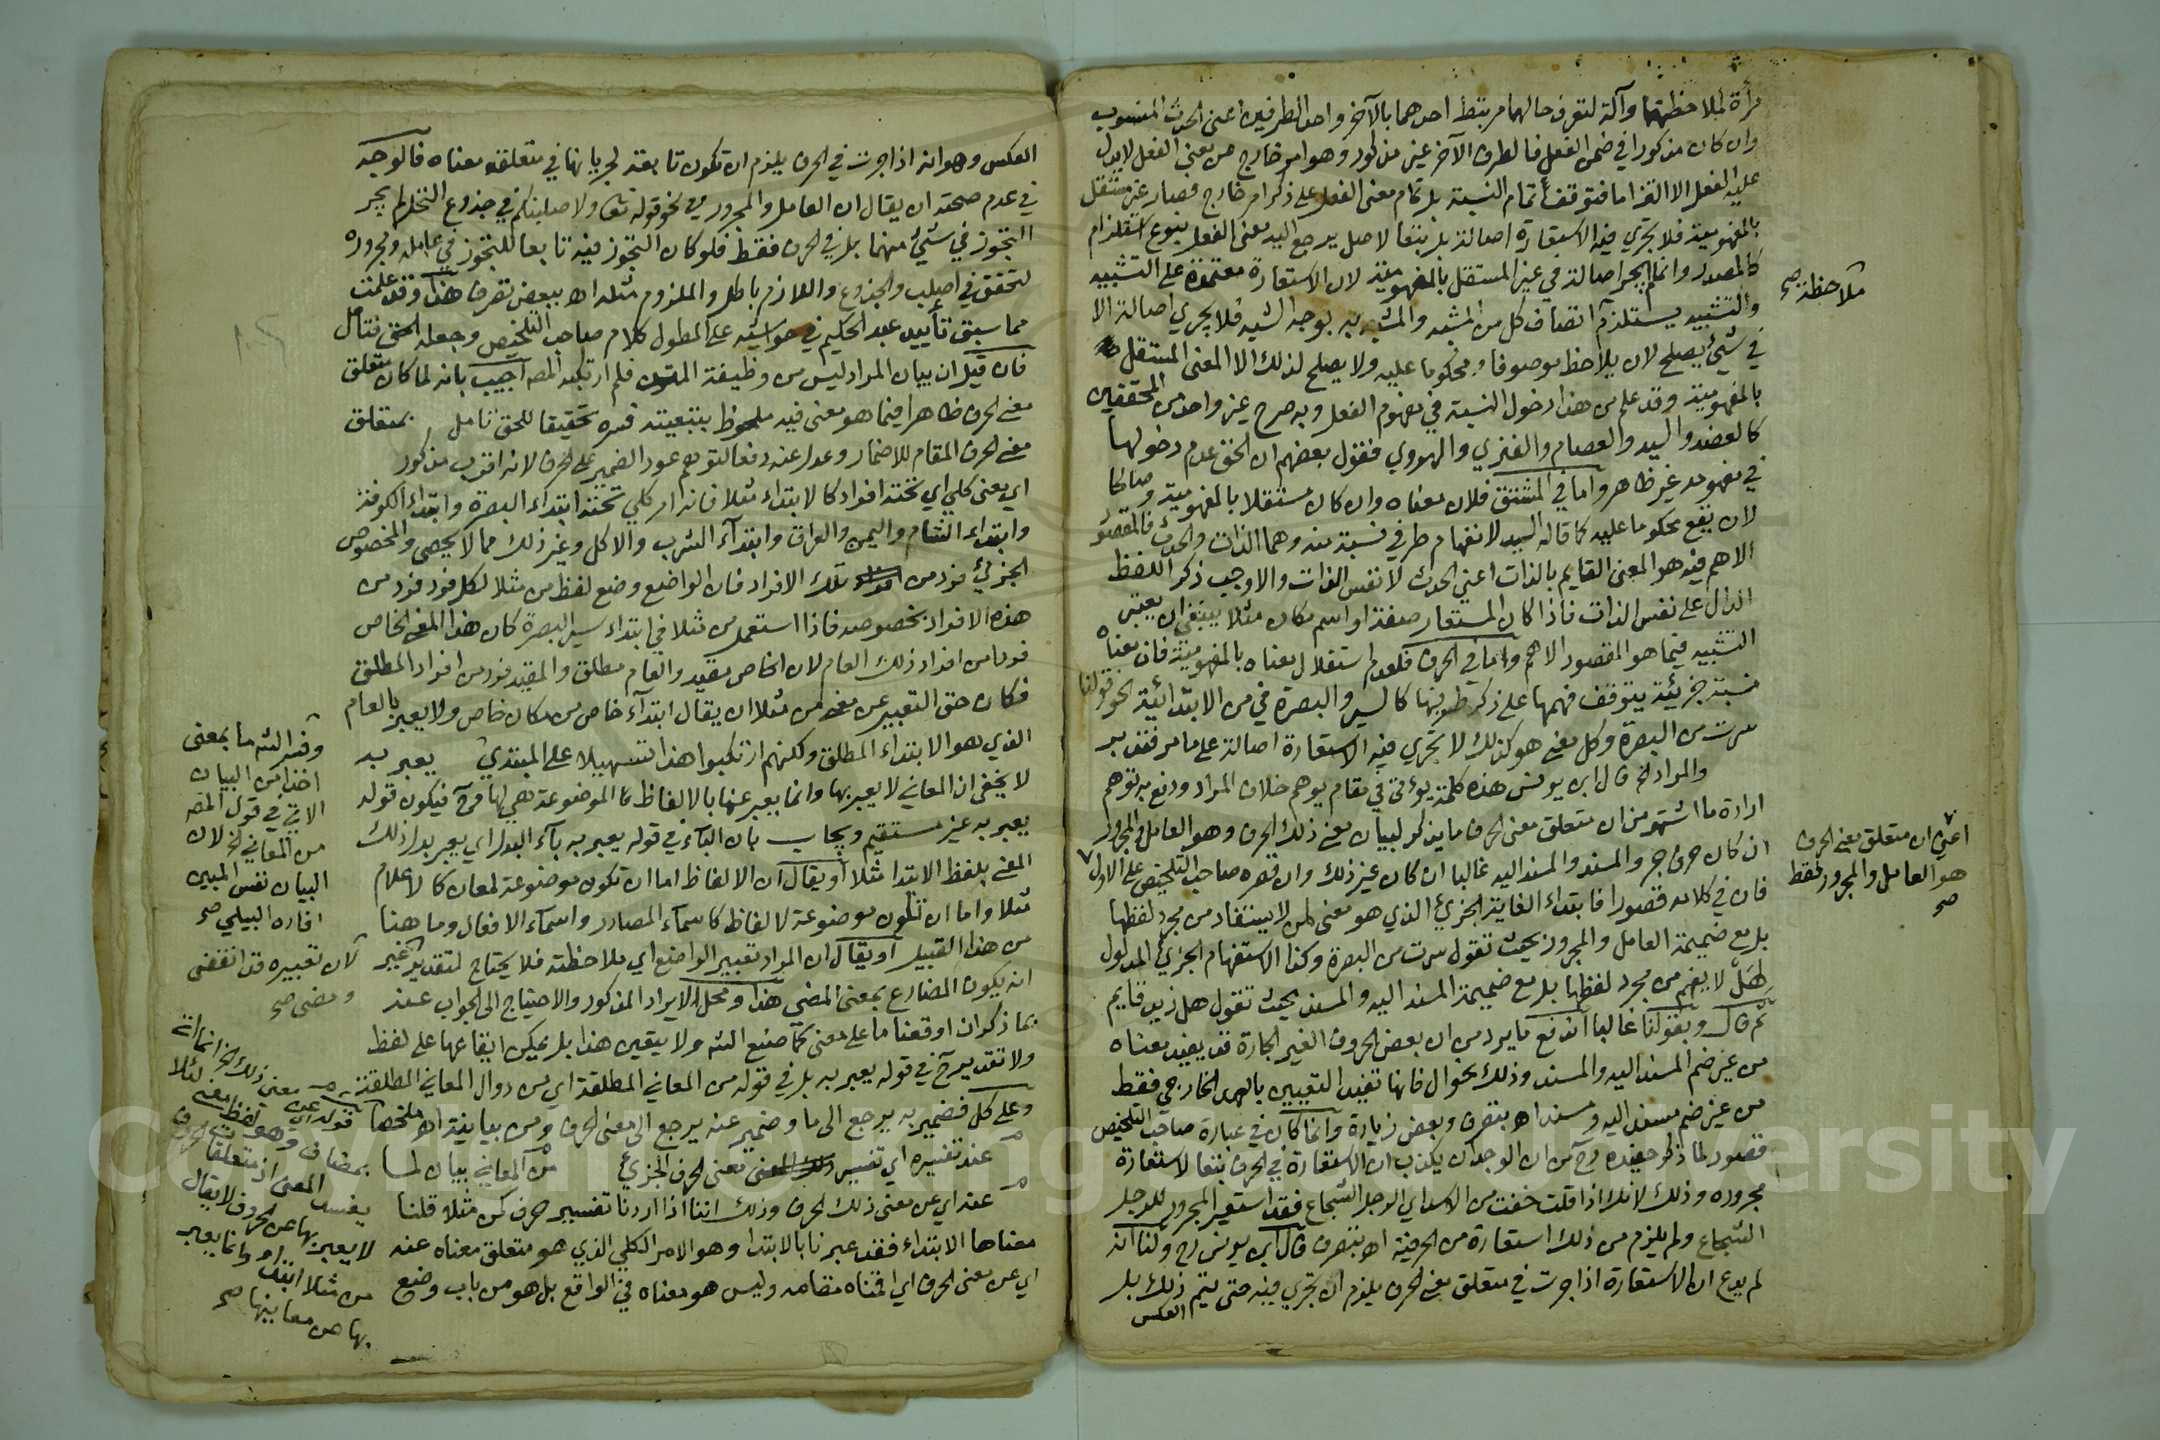 مرأة لملاحظتهما وآلة لتعرف حالهما مرتبط احدهما بالآخر واحد الطرفين اعنى الحدث المنسوب
وان كان مذكورا في ضمن الفعل فالطرف الآخر غير مذكور وهو امر خارج عن معنى الفعل لا يدل
عليه الفعل الا التزاما فتوقف تمام النسبة بل تمام معنى الفعل على ذكر امر خارج فصار غير مستقل
بالمفهومية فلا تجري فيه الاستعارة اصالة بل بتبعا لاصل يرجع اليه معنى الفعل بنوع استلزام
كالمصدر وانما لم تجر اصالة في غير المستقل بالمفهومية لان الاستعارة معتمدة على التشبيه
والتشبيه يستلزم اتصاف كل من المشبه والمشبه به بوجه الشبه فلا يجري اصالة الا
في شيئ يصلح لان يلاحظ موصوفا ومحكوما عليه ولا يصلح لذلك الا المعنى المستقل
بالمفهومية وقد علم من هذا دخول النسبة في مفهوم الفعل وبه صرح غير واحد من المحققين
كالعضد والسيد والعصام والفنري والهروي فقول بعضهم ان الحق عدم دخولها
في مفهومه غير ظاهر واما في المشتق فلان معناه وان كان مستقلا بالمفهومية وصالحا
لان يقع محكوما عليه كما قاله السيد لانفهام طرفي نسبته منه وهما الذات والحدث فالمقصود
الاهم فيه هو المعنى القايم بالذات اعني الحدث لا نفس الذات والا وجب ذكر اللفظ
الدال على نفس الذات فاذا كان المستعار صفة او اسم مكان مثلا ينبغي ان يعتبر
التشبيه فيما هو المقصود الاهم واما في الحرف فلعدم استقلال معناه بالمفهومية فان معناه
نسبة جزئية يتوقف فهمها على ذكر طرفيها كالسير والبصرة في من الابتدائية نحو قولنا
سرت من البصرة وكل معنى هو كذلك لا تجري فيه الاستعارة اصالة على ما مر فتدبر
والمراد الخ قال ابن يونس هذه كلمة يؤتى في مقام يوهم خلاف المراد ودفع به توهم
ارادة ما اشتهر من ان متعلق معنى الحرف ما يذكر لبيان معنى ذلك الحرف وهو العامل والمجرور
ان كان حرف جر والمسند والمسند اليه غالبا ان كان غير ذلك وان قصره صاحب التلخيص على الاول
فان في كلامه قصورا فابتداء الغاية الجزئي الذي هو معنى لمن لا يستفاد من مجرد لفظها
بل مع ضميمة العامل والمجرور بحيث تقول سرت من البصرة وكذا الاستفهام الجزئي المدلول
لهل لا يفهم من مجرد لفظها بل مع ضميمة المسند اليه والمسند بحيث تقول هل زيد قايم
ثم قال وبقولنا غالبا اندفع ما يرد من ان بعض الحروف الغير الجارة قد يفيد معناه
من غير ضم المسند اليه والمسند وذلك نحو ال فانها تفيد التعيين بالعهد الخارجي فقط
من غير ضم مسند اليه ومسند اه بتصرف وبعض زيادة وانما كان في عبارة صاحب التلخيص
قصور لما ذكره حفيده رح من ان الوجدان يكذب ان الاستعارة في الحرف تبعا لاستعارة
مجروره وذلك لانك اذا قلت خفت من الاسد اي الرجل الشجاع فقد استعير المجرور للرجل
الشجاع ولم يلزم من ذلك استعارة من الحرفية اه بتصرف قال ابن يونس رح ولنا انه
لم يدع ان الاستعارة اذا جرت في متعلق معنى الحرف يلزم ان تجري فيه حتى يتم ذلك بل
العكس
ملاحظة صح
اعني ان متعلق معنى الحرف
هو العامل والمجرور فقط
صح
العكس وهو انه اذا جرت في الحرف يلزم ان تكون تابعة لجريانها في متعلقه معناه فالوجه
في عدم صحته ان يقال ان العامل والمجرور في نحو قوله تعالى ولاصلبنكم في جذوع النخل لم يجر
التجوز في شيئ منهما بل في الحرف فقط فلو كان التجوز فيه تابعا للتجوز في عامله ومجروره
لتحقق في اصلب والجذوع واللازم باطل والملزوم مثله اه ببعض تصرف هذا وقد علمت
مما سبق تأييد عبد الحكيم في حواشيه على المطول كلام صاحب التلخيص وجعله الحق فتأمل
فان قيل ان بيان المراد ليس من وظيفة المتون فلم ارتكبه المصه اجيب بانه لما كان متعلق
معنى الحرف ظاهرا فيما هو معنى فيه ملحوظ بتبعيته فسره تحقيقا للحق تامل بمتعلق
معنى الحرف المقام للاضمار وعدل عنه دفعا لتوهم عود الضمير على الحرف لانه اقرب مذكور
اي معنى كلي اي تحته افراد كالابتداء مثلا فانه امر كلي تحته ابتداء البصرة وابتداء الكوفة
وابتداء الشام واليمن والعراق وابتدآء الشرب والاكل وغير ذلك مما لا يحصى والمخصوص
الجزئي فرد من تلك الافراد فان الواضع وضع لفظ من مثلا لكل فرد فرد من
هذه الافراد بخصوصه فاذا استعمل من مثلا في ابتداء سير البصرة كان هذا المعنى الخاص
فردا من افراد ذلك العام لان الخاص مقيد والعام مطلق والمقيد فرد من افراد المطلق
فكان حق التعبير عن معنى من مثلا ان يقال ابتدآء خاص من مكان خاص ولا يعبر بالعام
الذي هو الابتداء المطلق ولكنهم ارتكبوا هذا تسهيلا على المبتدي يعبر به
لا يخفى ان المعاني لا يعبر بها وانما يعبر عنها بالالفاظ الموضوعة هي لها فح فيكون قوله
يعبر به غير مستقيم ويجاب بان البآء في قوله يعبر به بآء البدل اي يعبر بدل ذلك
المعنى بلفظ الابتدا مثلا او يقال ان الالفاظ اما ان تكون موضوعة لمعان كالاعلام
مثلا واما ان تكون موضوعة لالفاظ كاسمآء المصادر واسمآء الافعال وما هنا
من هذا القبيل او يقال ان المراد تعبير الواضع اي ملاحظته فلا يحتاج لتقدير غير
انه يكون المضارع بمعنى المضي هذا ومحل الايراد المذكور والاحتياج الى الجواب عنه
بما ذكر ان اوقعنا ما على معنى كما صنع الشه ولا يتعين هذا بل يمكن ايقاعها على لفظ
ولا تقدير ح في قوله يعبر به بل في قوله من المعاني المطلقة اي من دوال المعاني المطلقة
وعلى كل فضمير به يرجع الى ما وضمير عنه يرجع الى معنى الحرف ومن بيانية اه ملخصا قوله
عند تفسيره اي تفسير معنى الحرف الجزئي من المعاني بيان لما
عنه اي عن معنى ذلك الحرف وذلك اننا اذا اردنا تفسير حرف كمن مثلا قلنا
معناها الابتداء فقد عبرنا بالابتدا وهو الامر الكلي الذي هو متعلق معناه عنه
اي عن معنى الحرف اي اقمناه مقامه وليس هو معناه في الواقع بل هو من باب وضع
وفسر الشه ما بمعنى
اخذا من البيان
الاتي في قول المصه
من المعاني الخ لان
البيان نفس المبين
افاده البيلي صح
لان تعبيره قد انقضى
ومضى صح
لا يعبر بها عن الحروف لا يقال
بها عن معانيها صح
Copyright © King Saud University